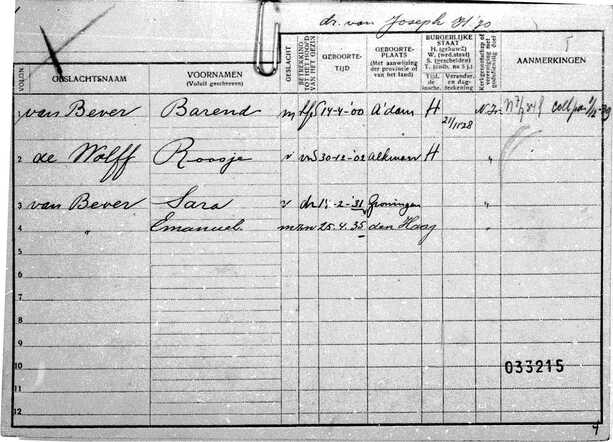 dr. van Joseph
VOLGN.
GESLACHTSNAAM
VOORNAMEN
(Voluit geschreven)
GESLACHT
BETREKKING TOT HET HOOFD VAN HET GEZIN
GEBOORTE-TIJD
GEBOORTE-PLAATS
(Met aanwijzing der provincie of van het land)
BURGERLIJKE STAAT
H. (gehuwd)
W. (wed.staat)
S. (gescheiden)
T. (onb. no 5 j.)
Tijd. de inschr.
Verander. en dag-teekening
Kerkgenootschap of vereeniging met godsdienstig doel
AANMERKINGEN
1 van Bever Barend m hfd 14-4-'00 A'dam H 21/1128 N.Isr
2 de Wolff Roosje v vr 30-12-'02 Alkmaar H "
3 van Bever Sara v dr -2-'31 Groningen "
4 " Emanuel m zn 25.4.35 den Haag "
5
6
7
8
9
10
11
12
033215